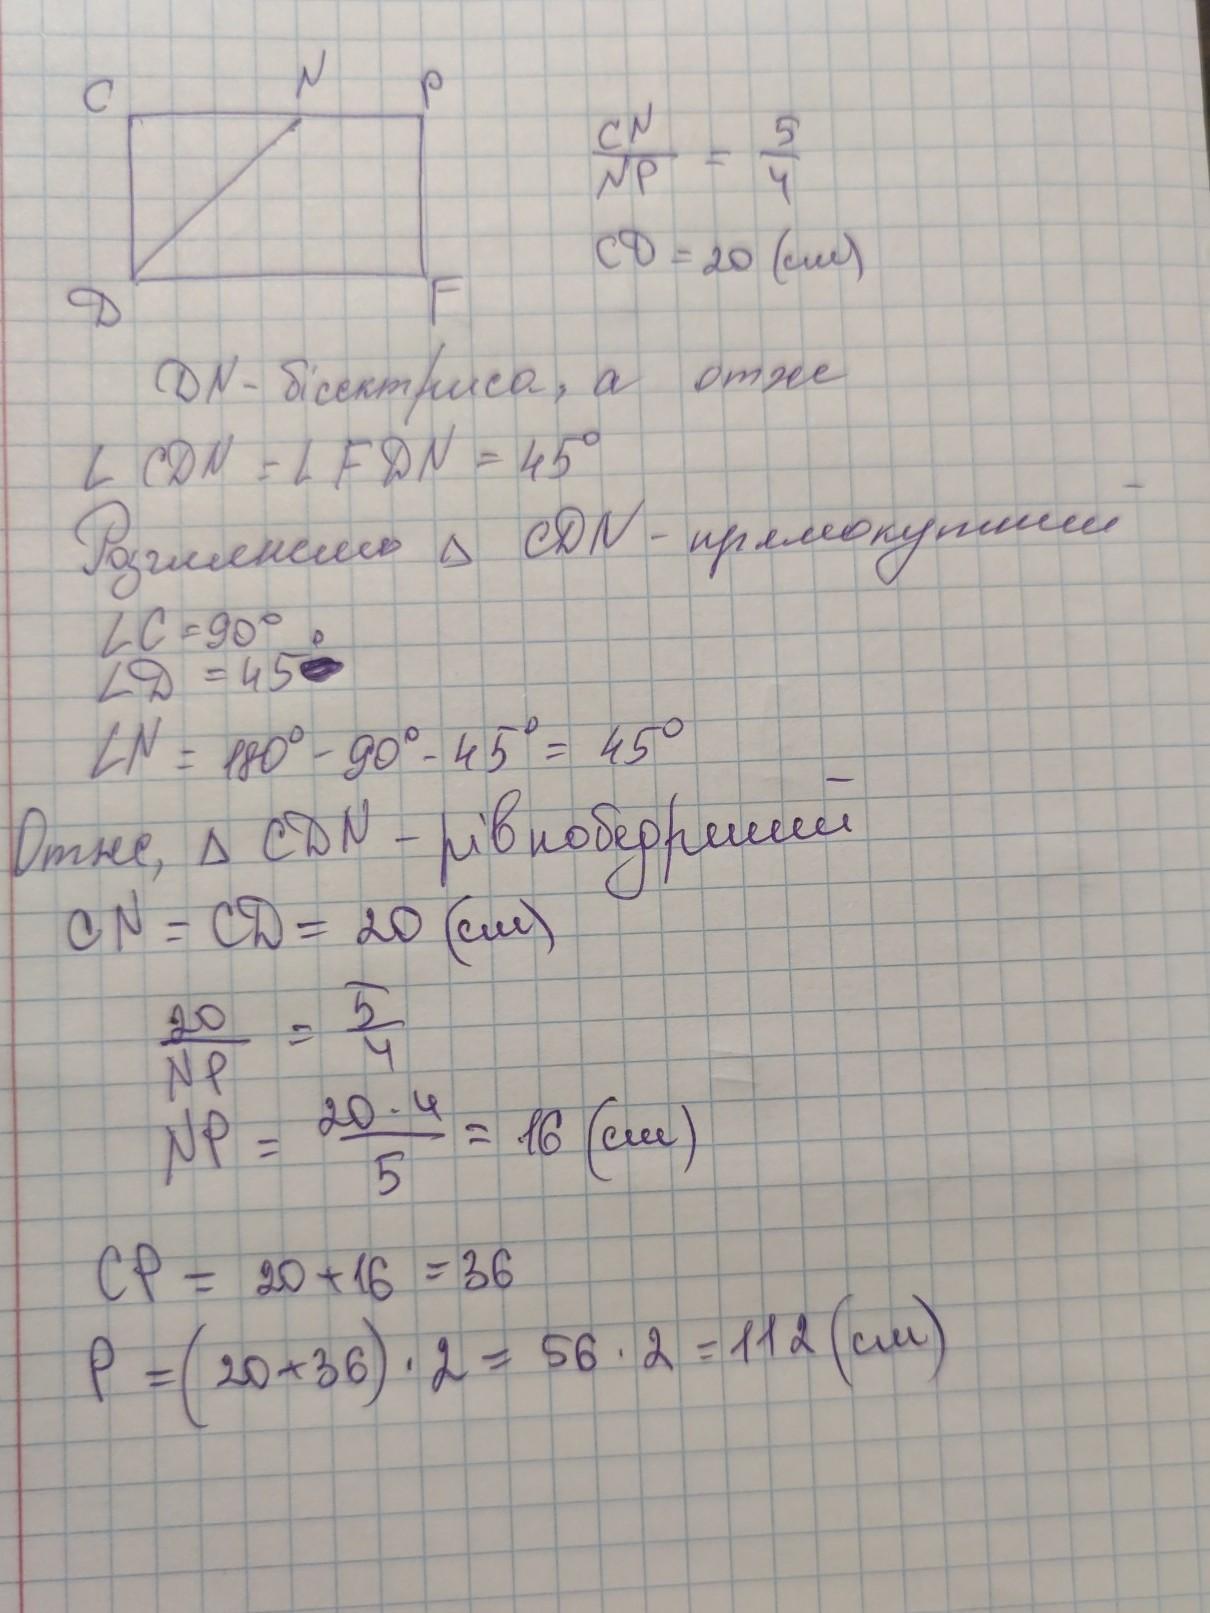 C N P
CN/NP = 5/4
CD = 20 (см)
D F
DN - бісектриса, а отже
∠ CDN = ∠ FDN = 45°
Розглянемо △ CDN - прямокутний
∠C = 90°
∠D = 45°
∠N = 180° - 90° - 45° = 45°
Отже, △ CDN - рівнобедрений
CN = CD = 20 (см)
20/NP = 5/4
NP = 20·4/5 = 16 (см)
CP = 20+16 = 36
P = (20+36)·2 = 56·2 = 112 (см)